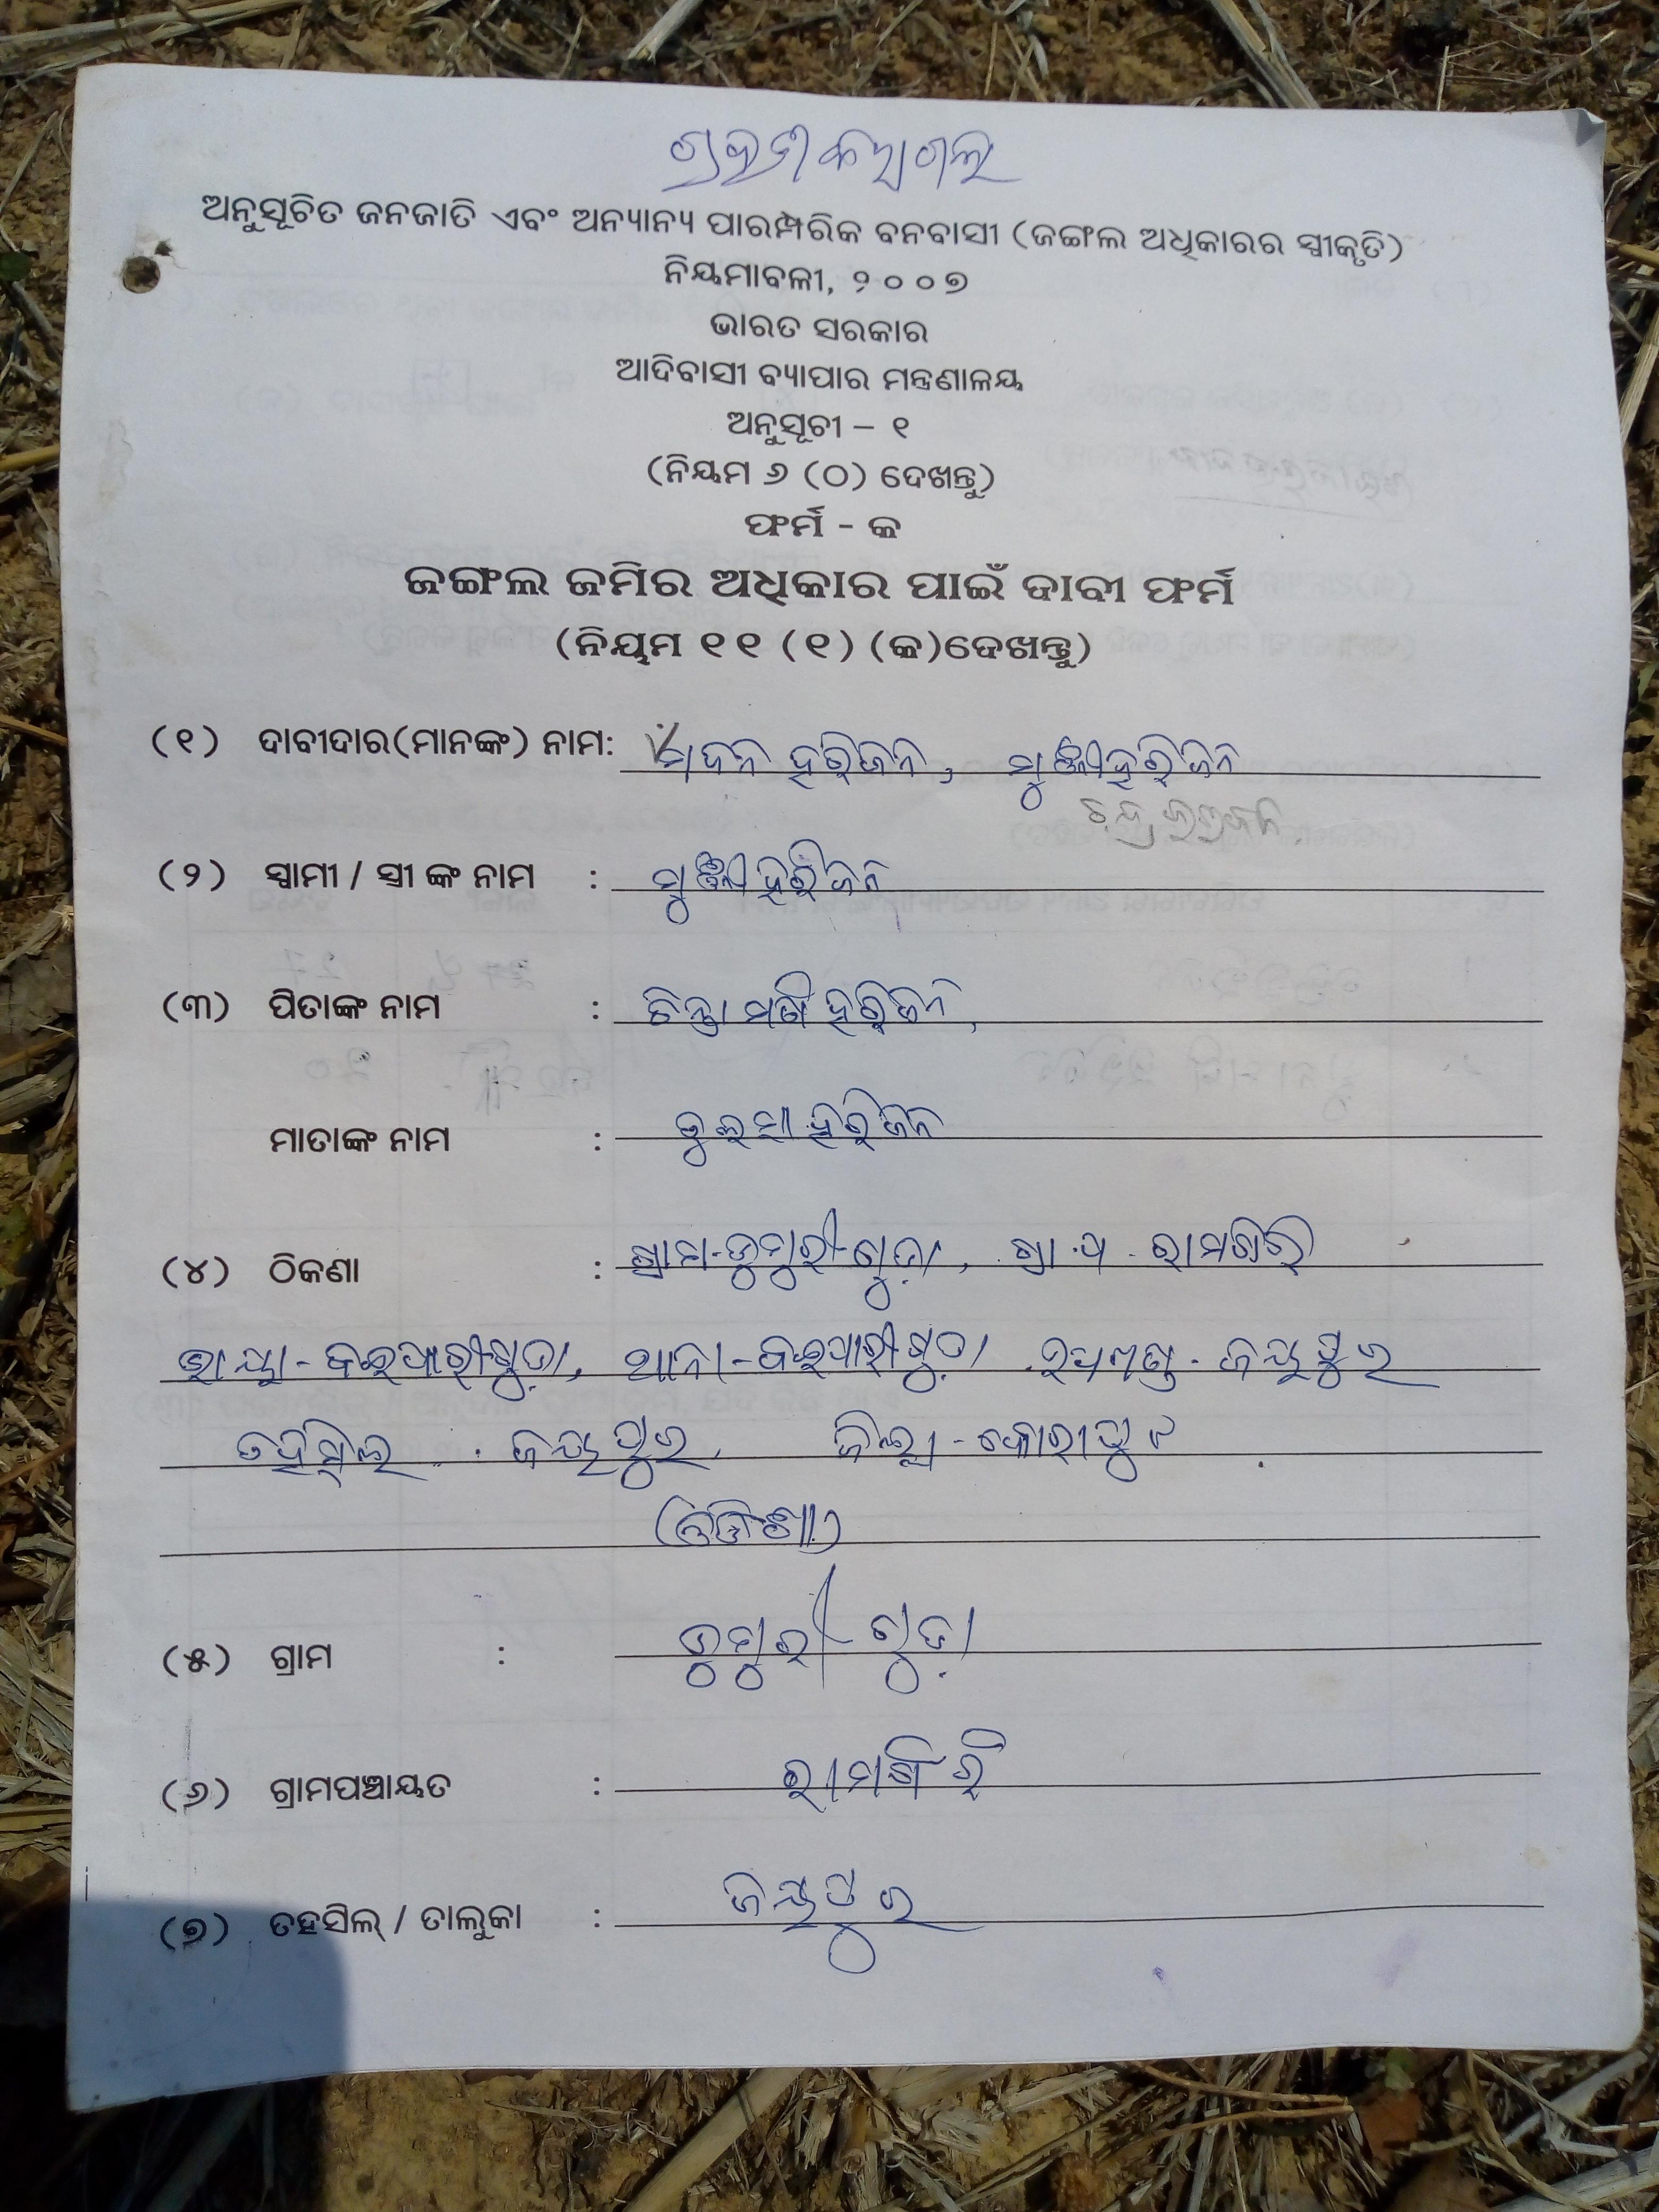 ଅନୁସୂଚିତ ଜନଜାତି ଏବଂ ଅନ୍ୟାନ୍ୟ ପାରମ୍ପରିକ ବନବାସୀ (ଜଙ୍ଗଲ ଅଧିକାରର ସ୍ୱୀକୃତି)
ନିୟମାବଳୀ, ୨୦୦୭
ଭାରତ ସରକାର
ଆଦିବାସୀ ବ୍ୟାପାର ମନ୍ତ୍ରଣାଳୟ
ଅନୁସୂଚୀ – ୧
(ନିୟମ ୬ (୦) ଦେଖନ୍ତୁ)
ଫର୍ମ - କ
ଜଙ୍ଗଲ ଜମିର ଅଧିକାର ପାଇଁ ଦାବୀ ଫର୍ମ
(ନିୟମ ୧୧ (୧) (କ)ଦେଖନ୍ତୁ)
(୧) ଦାବୀଦାର(ମାନଙ୍କ) ନାମ: ମଦନ ହରିଜନ, ହରିଜନ
(୨) ସ୍ୱାମୀ / ସ୍ତ୍ରୀ ଙ୍କ ନାମ : ହରିଜନ
(୩) ପିତାଙ୍କ ନାମ : ଚିନ୍ତାମଣି ହରିଜନ,
ମାତାଙ୍କ ନାମ : ହରିଜନ
(୪) ଠିକଣା : ଗ୍ରାମ-ଡୁମୁରୀଗୁଡ଼ା, ଗ୍ରା.ପ. ରାମଗିରି
ଭାୟା-ବଇପାରୀଗୁଡ଼ା, ଥାନା-ବଇପାରୀଗୁଡ଼ା ଜୟପୁର
ତହସିଲ . ଜୟପୁର, ଜିଲ୍ଲା-କୋରାପୁଟ
(ଓଡିଶା)
(୫) ଗ୍ରାମ : ଡୁମୁରୀଗୁଡ଼ା
(୬) ଗ୍ରାମପଞ୍ଚାୟତ : ରାମଗିରି
(୭) ତହସିଲ୍ / ତାଲୁକା : ଜୟପୁର